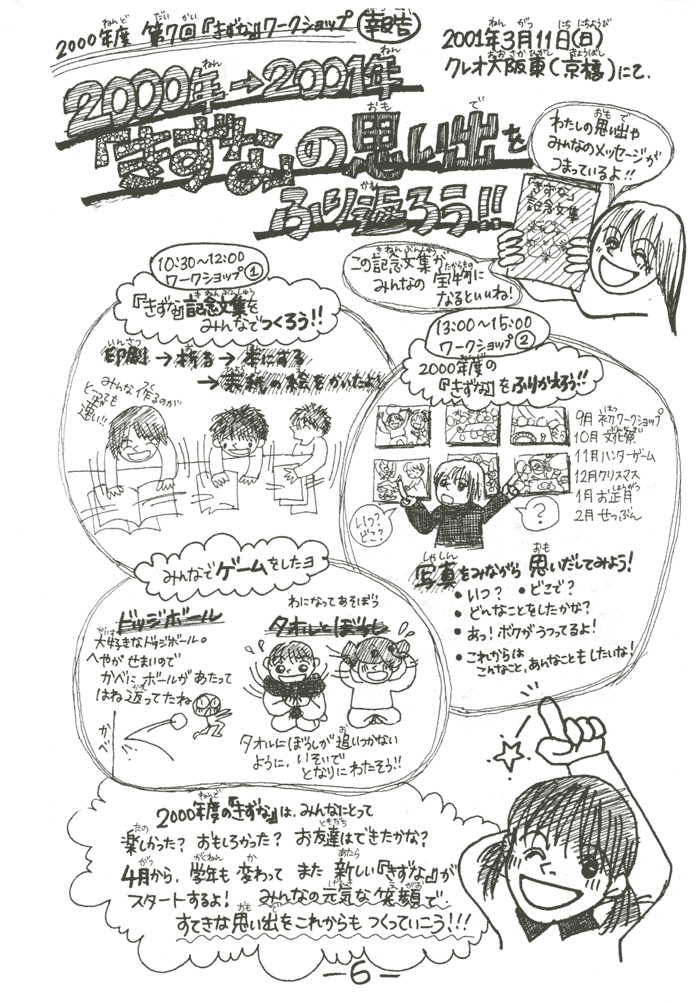 2000年度 第7回『きずな』ワークショップ 報告
2001年3月11日(日)
クレオ大阪東(京橋)にて.
2000年→2001年
『きずな』の思い出を
ふり返ろう!!
わたしの思い出や
みんなのメッセージが
つまっているよ!!
『きずな』
記念文集
この記念文集が
みんなの宝物に
なるといいね!
10:30〜12:00
ワークショップ①
『きずな』記念文集を
みんなでつくろう!!
印刷→折る→本にする
→表紙の絵をかいたよ!
みんなで作るのが
とっても
速い!!
13:00〜15:00
ワークショップ②
2000年度の
『きずな』をふりかえろう!!
9月 初ワークショップ
10月 文化祭
11月 ハンターゲーム
12月 クリスマス
1月 お正月
2月 せつぶん
いつ?
どこ?
?
写真をみながら 思いだしてみよう!
・いつ? ・どこで?
・どんなことをしたかな?
・あっ!ボクがうつってるよ!
・これからは
こんなこと,あんなこともしたいな!
みんなでゲームをしたヨ
ドッジボール
大好きなドッジボール。
へやがせまいので
かべにボールがあたって
はね返ってたね
かべ
わになってあそぼう
タオルとぼうし
タオルにぼうしが追いつかない
ように,いそいで
となりにわたそう!!
2000年度の『きずな』は,みんなにとって
楽しかった? おもしろかった? お友達はできたかな?
4月から,学年も変わって また 新しい『きずな』が
スタートするよ! みんなの元気な笑顔で
すてきな思い出をこれからもつくっていこう!!!
-6-